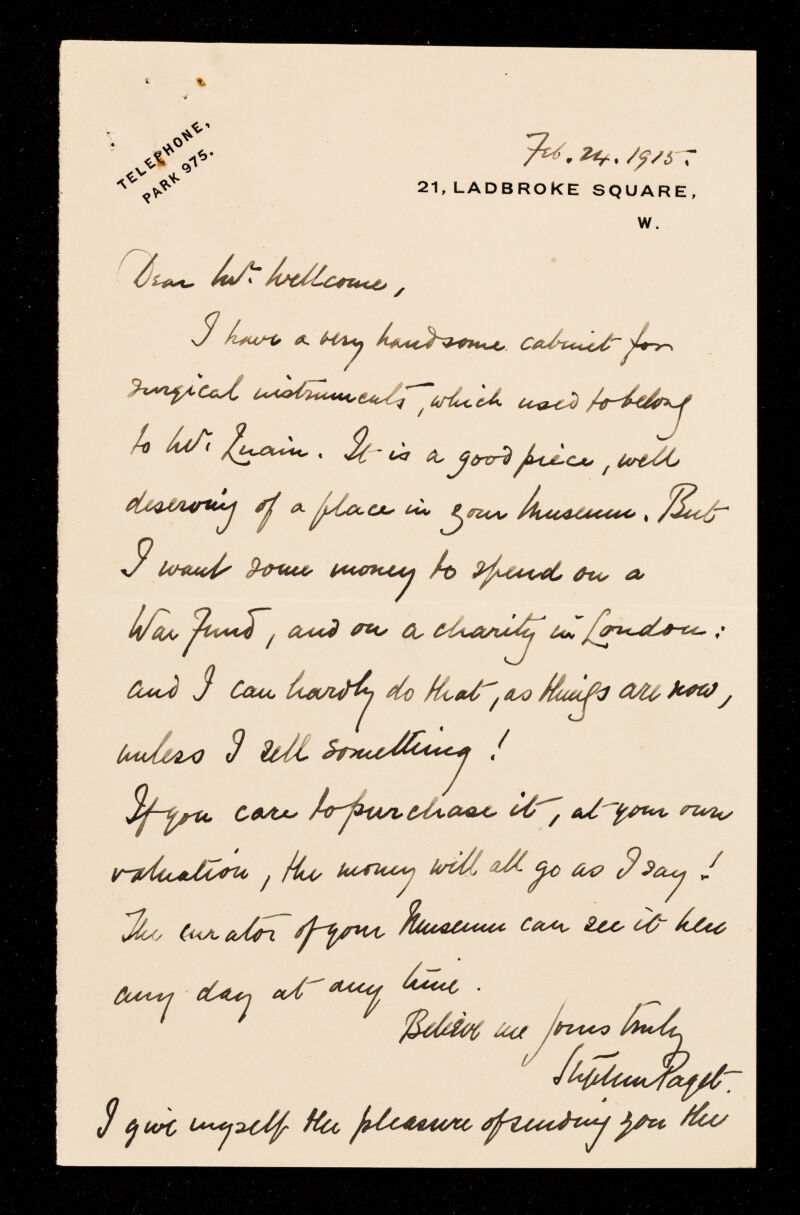 TELEPHONE,
PARK 975.
Feb. 24. 1915.
21, LADBROKE SQUARE,
W.
Dear Mr. Wellcome,
I have a very handsome cabinet for
surgical instruments, which used to belong
to Mr. Quain. It is a good piece, well
deserving of a place in your Museum. But
I want some money to spend on a
War Fund, and on a charity in London:
and I can hardly do that, as things are now,
unless I sell something!
If you care to purchase it, at your own
valuation, the money will all go as I say!
The curator of your Museum can see it here
any day at any time.
Believe me yours truly
Stephen Paget.
I give myself the pleasure of sending you the